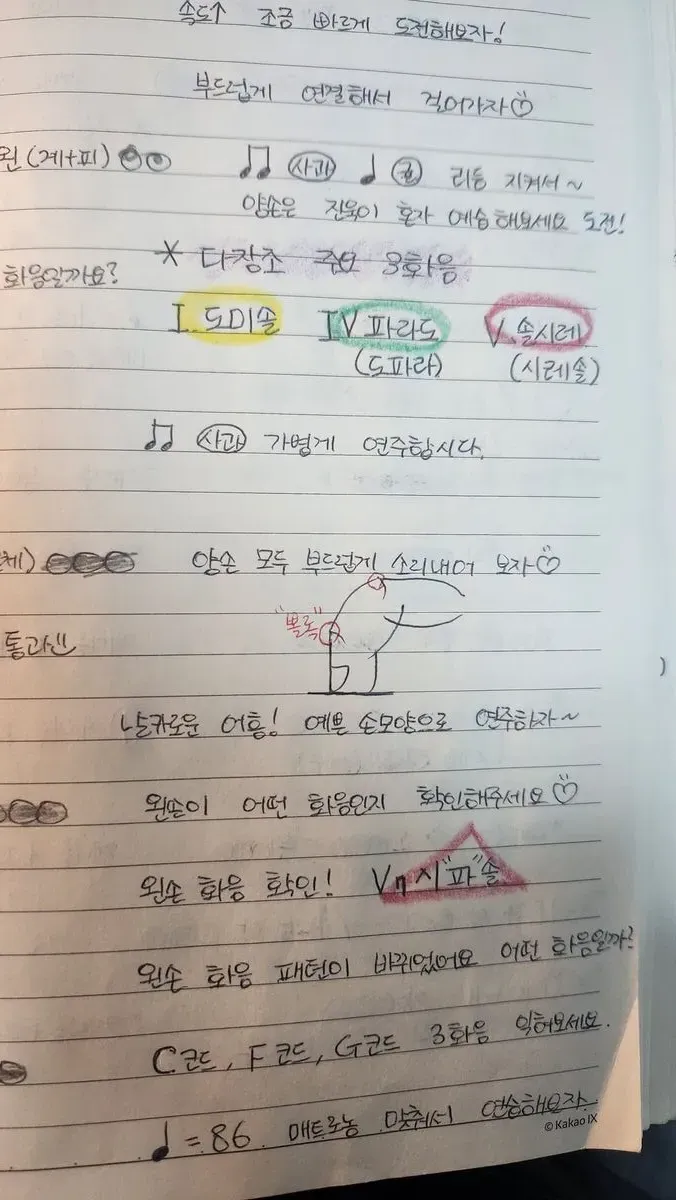 속도↑ 조금 빠르게 도전해보자!
부드럽게 연결해서 걸어가자
왼(계+피) ♫ 사과 ♩ 귤 리듬 지켜서~
양손은 진욱이 혼자 예습해보세요 도전!
* 다장조 주요 3화음
화음일까요?
I 도미솔 IV 파라도 V 솔시레
(도파라) (시레솔)
♫ 사과 가볍게 연주합시다.
체) 양손 모두 부드럽게 소리내어 보자
"볼록"
통과 센
날카로운 어흥! 예쁜 손모양으로 연주하자~
왼손이 어떤 화음인지 확인해주세요
왼손 화음 확인! V7 시"파"솔
왼손 화음 패턴이 바뀌었어요 어떤 화음일까?
C코드, F코드, G코드 3화음 익혀보세요.
♩=86 매트로놈 맞춰서 연습해보자.
© Kakao IX